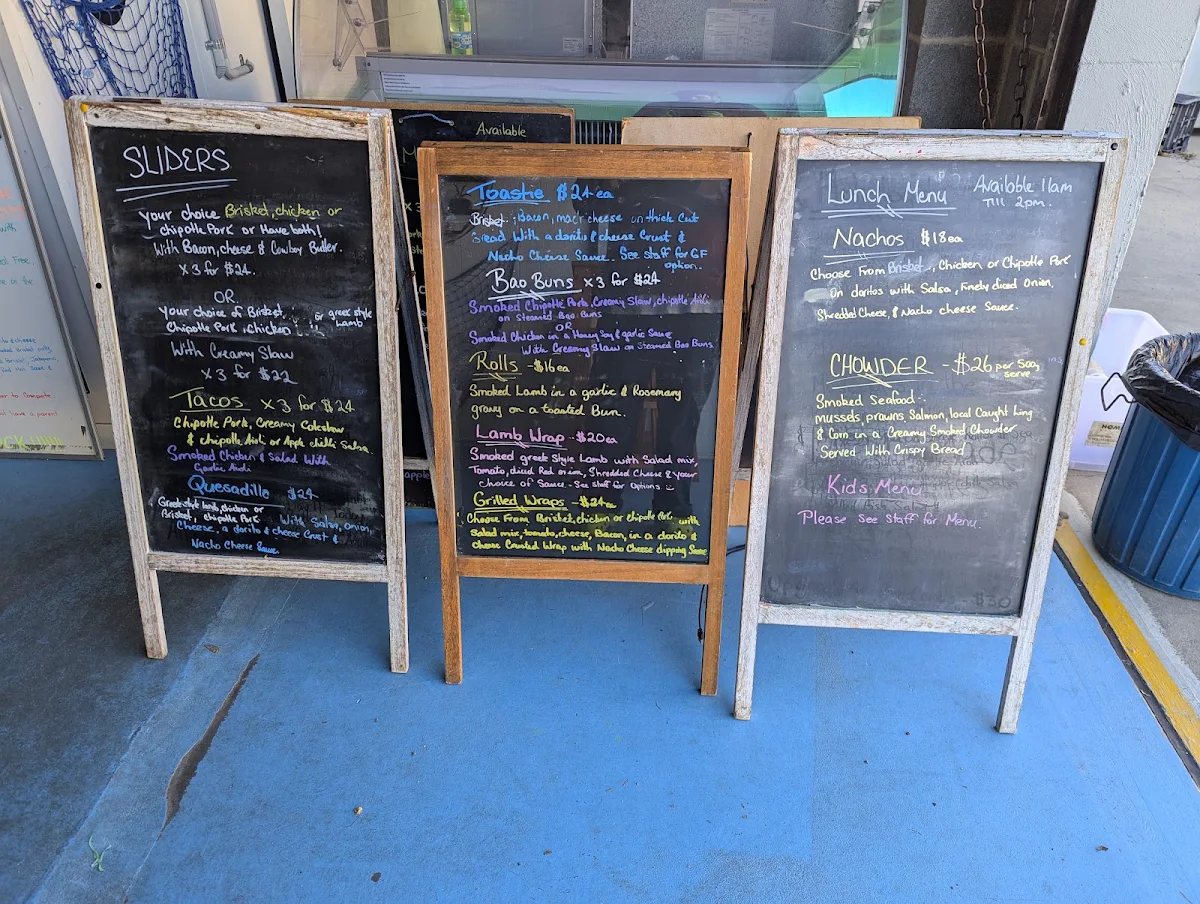 SLIDERS
your choice Brisket, chicken or
chipotle Pork or Have both!
With Bacon, cheese & Cowboy Butter.
x 3 for $24.
OR
your choice of Brisket, or greek style
Chipotle Pork, chicken, Lamb
With Creamy Slaw
x 3 for $22
Tacos x 3 for $24
Chipotle Pork, Creamy Coleslaw
& chipotle Aioli or Apple chilli Salsa
Smoked Chicken & Salad With
Garlic Aioli
Quesadilla $24
Greek style lamb, Chicken or
Brisket, chipotle Pork With Salsa, onion,
Cheese, a dorito & cheese Crust &
Nacho Cheese Sauce.
Available
Toastie $24 ea
Brisket, Bacon, mac n cheese on thick Cut
Bread With a dorito & cheese Crust &
Nacho Cheese Sauce. See staff for GF
option.
Bao Buns x 3 for $24
Smoked Chipotle Pork, Creamy Slaw, chipotle Aioli
on Steamed Bao Buns
OR
Smoked Chicken in a Honey Soy & garlic Sauce
With Creamy Slaw on Steamed Bao Buns
Rolls - $16 ea
Smoked Lamb in a garlic & Rosemary
gravy on a toasted Bun.
Lamb Wrap - $20 ea
Smoked greek Style Lamb with Salad mix,
Tomato, diced Red onion, Shredded Cheese & your
choice of Sauce - See staff for Options :)
Grilled Wraps - $24 ea
Choose From Brisket, chicken or chipotle Pork with
Salad mix, tomato, cheese, Bacon, in a dorito &
cheese Crusted Wrap with Nacho Cheese dipping Sauce
Lunch Menu Available 11am
Till 2pm.
Nachos $18 ea
Choose From Brisket, Chicken or Chipotle Pork
on doritos with Salsa, Finely diced Onion,
Shredded Cheese, & Nacho cheese Sauce.
CHOWDER - $26 per 500g
serve
Smoked Seafood -
mussels, prawns Salmon, local Caught Ling
& Corn in a Creamy Smoked Chowder
Served With Crispy Bread
Kids Menu
Please See Staff for Menu.